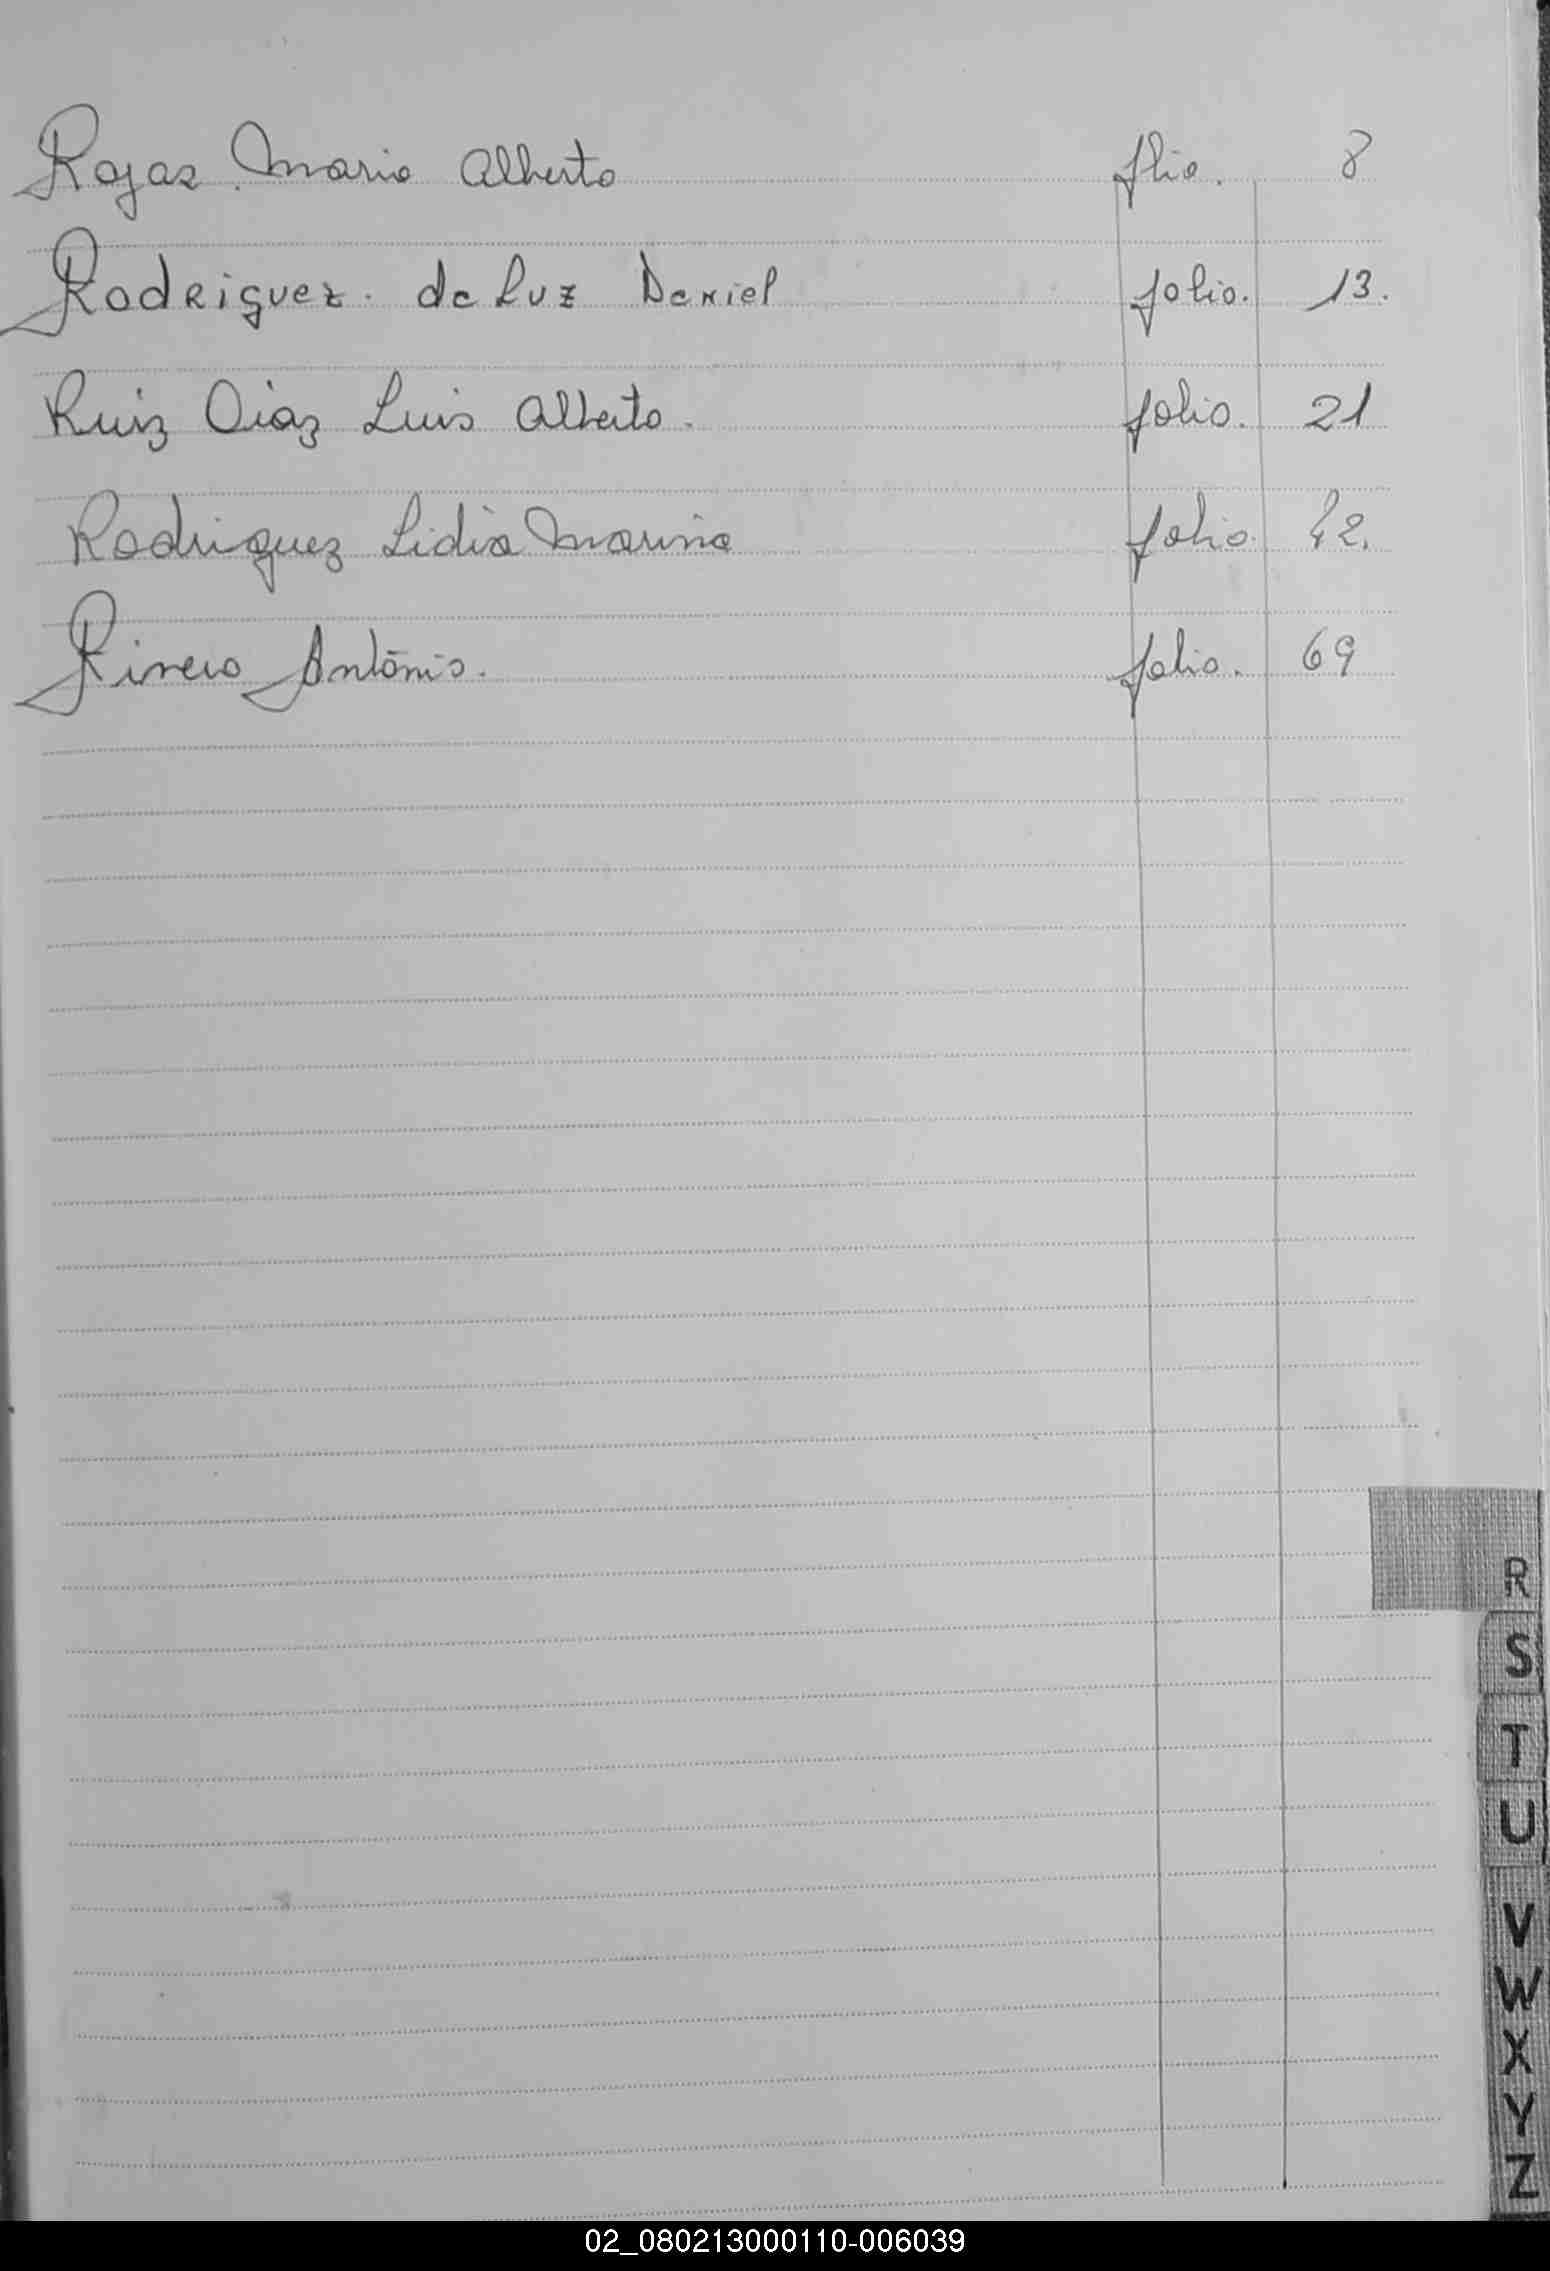 Rojas Mario Alberto flio. 8
Rodriguez. de Luz Daniel folio. 13.
Ruiz Diaz Luis Alberto. folio. 21
Rodriguez Lidia Marina folio. 42.
Rivero Antonio. folio. 69
R
S
T
U
V
W
X
Y
Z
02_080213000110-006039